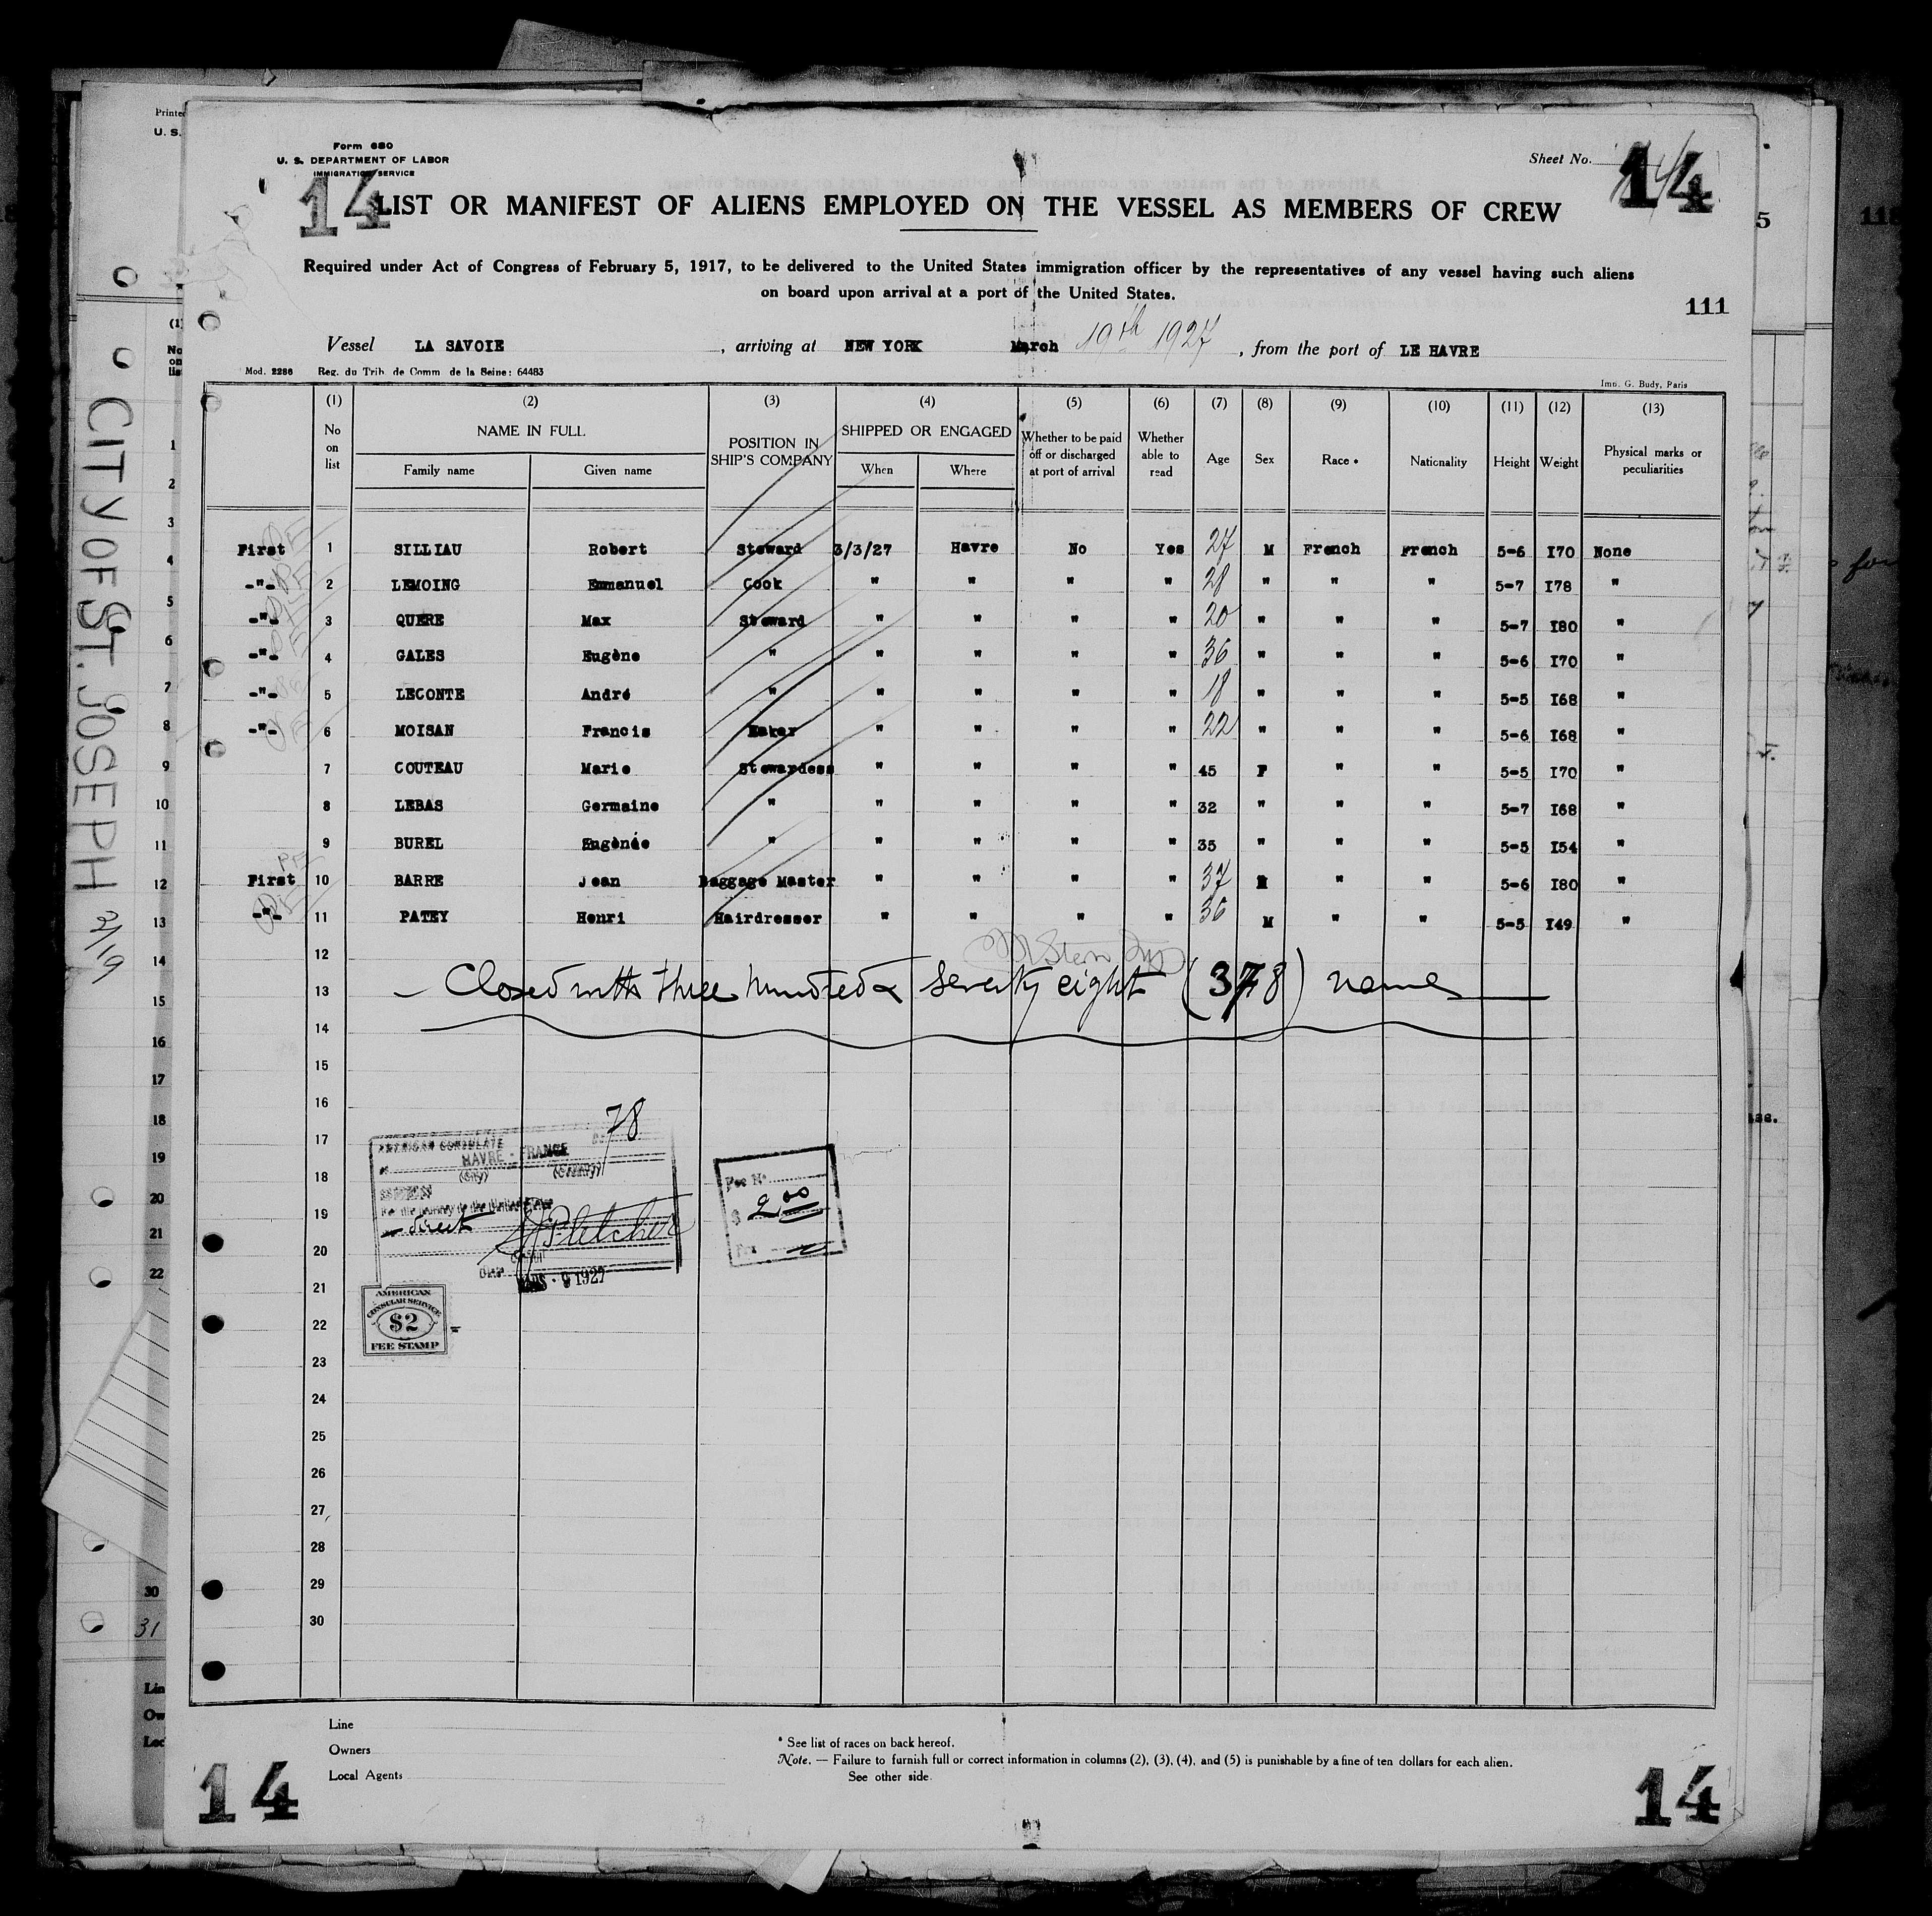 Form 680
U. S. DEPARTMENT OF LABOR
IMMIGRATION SERVICE
Sheet No. 14
14
LIST OR MANIFEST OF ALIENS EMPLOYED ON THE VESSEL AS MEMBERS OF CREW
Required under Act of Congress of February 5, 1917, to be delivered to the United States immigration officer by the representatives of any vessel having such aliens
on board upon arrival at a port of the United States.
111
Vessel LA SAVOIE, arriving at NEW YORK March 19th 1927, from the port of LE HAVRE
Mod. 2286 Reg. du Trib. de Comm. de la Seine: 64483
Imp. G. Budy, Paris
(1) (2) (3) (4) (5) (6) (7) (8) (9) (10) (11) (12) (13)
No on list NAME IN FULL Family name Given name POSITION IN SHIP'S COMPANY SHIPPED OR ENGAGED When Where Whether to be paid off or discharged at port of arrival Whether able to read Age Sex Race * Nationality Height Weight Physical marks or peculiarities
First 1 SILLIAU Robert Steward 3/3/27 Havre No Yes 27 M French French 5-6 I70 None
-"- 2 LEMOING Emmanuel Cook " " " " 28 " " " 5-7 I78 "
-"- 3 QUERE Max Steward " " " " 20 " " " 5-7 I80 "
-"- 4 GALES Eugène " " " " " 36 " " " 5-6 I70 "
-"- 5 LECONTE André " " " " " 18 " " " 5-5 I68 "
-"- 6 MOISAN Francis Baker " " " " 22 " " " 5-6 I68 "
7 COUTEAU Marie Stewardess " " " " 45 F " " 5-5 I70 "
8 LEBAS Germaine " " " " " 32 " " " 5-7 I68 "
9 BUREL Eugènée " " " " " 35 " " " 5-5 I54 "
First 10 BARRE Jean Baggage Master " " " " 37 M " " 5-6 I80 "
-"- 11 PATEY Henri Hairdresser " " " " 36 M " " 5-5 I49 "
12
13 Closed with three hundred & seventy eight (378) names
14
15
16
17
18
19
20
21
22
23
24
25
26
27
28
29
30
78
AMERICAN CONSULATE
HAVRE - FRANCE
(City) (Country)
direct
Consul
MARS - 9 1927
Fee No
$ 2.00
AMERICAN
CONSULAR SERVICE
$2
FEE STAMP
Line
Owners
Local Agents
* See list of races on back hereof.
Note. — Failure to furnish full or correct information in columns (2), (3), (4), and (5) is punishable by a fine of ten dollars for each alien.
See other side.
14
14
CITY OF ST. JOSEPH 3/19